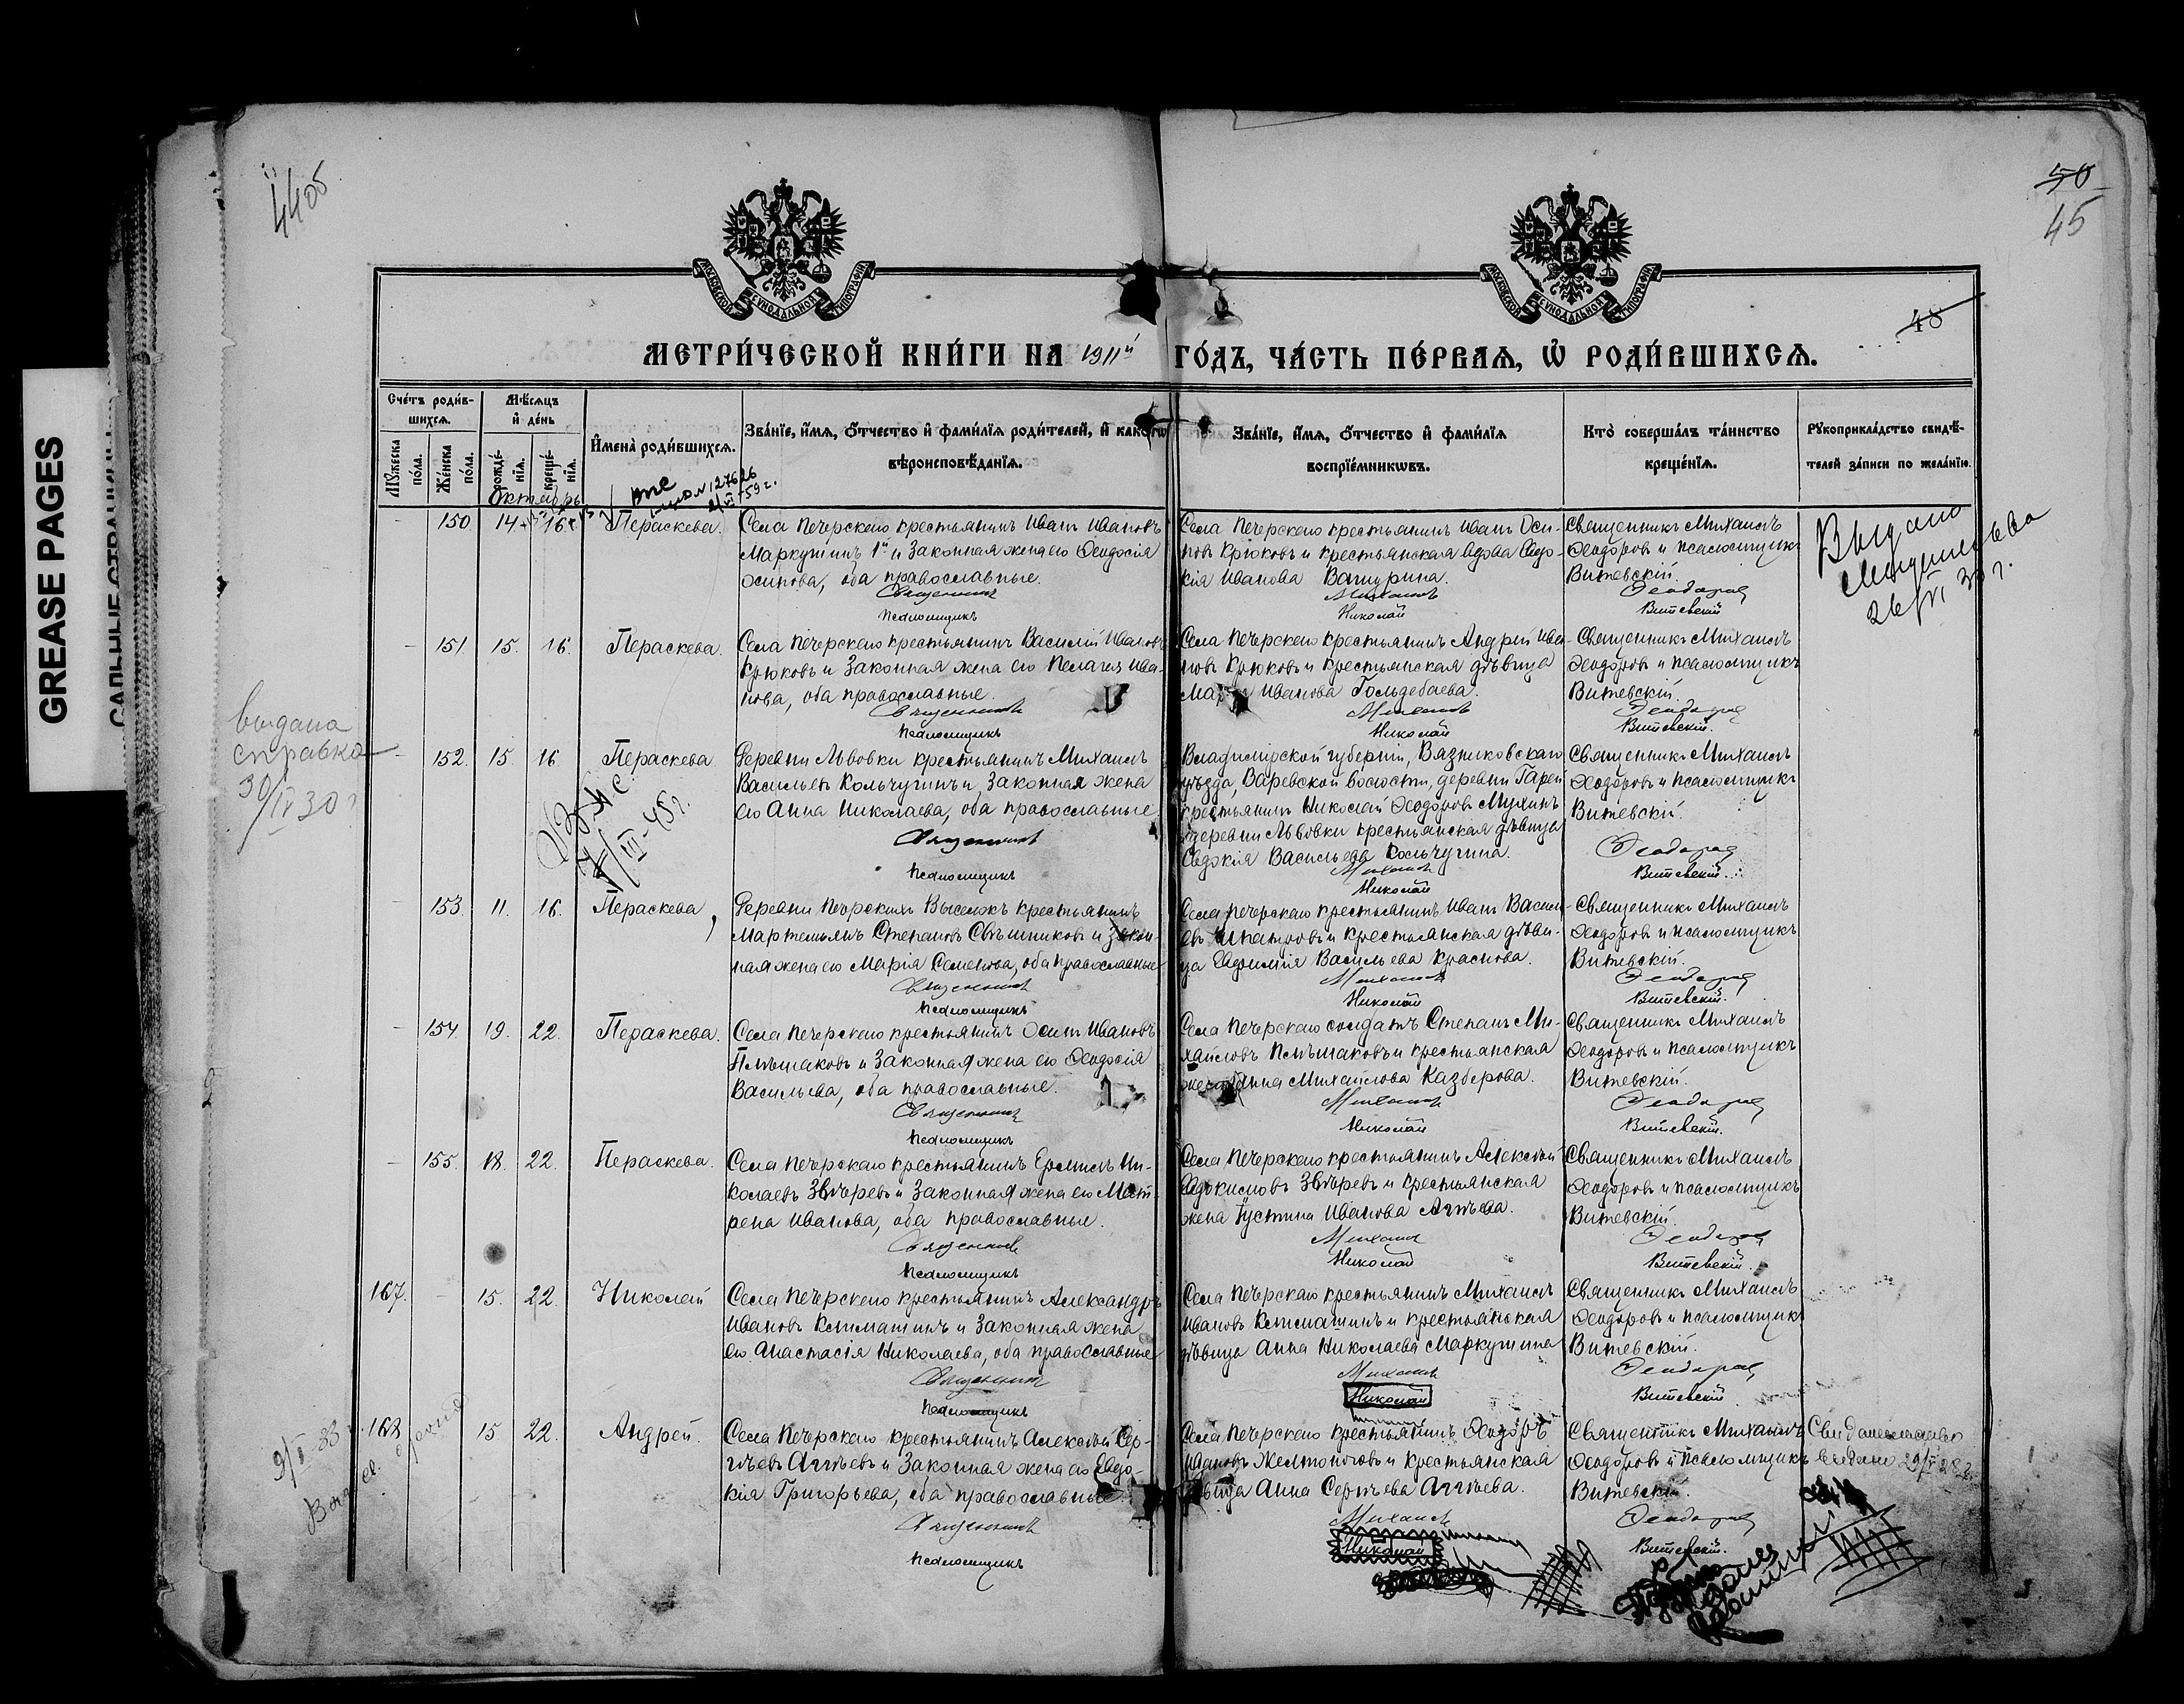 GREASE PAGES
44об
50
45
48
МОСКОВСКОЙ СѴНОДАЛЬНОЙ ТИПОГРАФІИ
МОСКОВСКОЙ СѴНОДАЛЬНОЙ ТИПОГРАФІИ
МЕТРИ́ЧЕСКОЙ КНИ́ГИ НА 1911й ГО́ДЪ, ЧА́СТЬ ПЕ́РВАЯ, Ѡ҆ РОДИ́ВШИХСЯ.
Сче́тъ роди́в-
шихся.
Мꙋжеска по́ла.
Же́нска по́ла.
Мѣ́сяцъ
и҆ де́нь
рожде́-
нїя.
креще́-
нїя.
И҆мена̀ роди́вшихся.
Зва́нїе, и҆́мя, ѻ҆́тчество и҆ фами́лїя роди́телей, и҆ како́гѡ
вѣроисповѣ́данїя.
Зва́нїе, и҆́мя, ѻ҆́тчество и҆ фами́лїя
воспрїе́мникѡвъ.
Кто̀ соверша́лъ та́инство
креще́нїя.
Рꙋкоприкла́дство свидѣ́-
телей за́писи по жела́нїю.
Октябрь
150. 14 16. Пераскева.
Села Печерскаго крестьянинъ Иванъ Ивановъ
Маркушинъ 1й и законная жена его Ѳеодосія
Осипова, оба православные.
Священникъ
Псаломщикъ
Села Печерскаго крестьянинъ Иванъ Оси-
повъ Крюковъ и крестьянская вдова Евдо-
кія Иванова Вашурина.
Михаилъ
Николай
Священникъ Михаилъ
Ѳеодоровъ и псаломщикъ
Витевскій.
Ѳеодоровъ
Витевскій
Выдано
свидетельство
26/VI 30 г.
151. 15. 16. Пераскева.
Села Печерскаго крестьянинъ Василій Ивановъ
Крюковъ и законная жена его Пелагея Ива-
нова, оба православные.
Священникъ
Псаломщикъ
Села Печерскаго крестьянинъ Андрей Ива-
новъ Крюковъ и крестьянская дѣвица
Марія Иванова Гольдебаева.
Михаилъ
Николай
Священникъ Михаилъ
Ѳеодоровъ и псаломщикъ
Витевскій.
Ѳеодоровъ
Витевскій.
выдана
справка
30/IV 30 г
152. 15. 16. Пераскева.
Деревни Львовки крестьянинъ Михаилъ
Васильевъ Кольчугинъ и законная жена
его Анна Николаева, оба православные
Священникъ
Псаломщикъ
Владимірской губерніи, Вязниковскаго
уѣзда, Варевской волости, деревни Гарей
крестьянинъ Николай Ѳеодоровъ Мухинъ
и деревни Львовки крестьянская дѣвица
Евдокія Васильева Кольчугина.
Михаилъ
Николай
Священникъ Михаилъ
Ѳеодоровъ и псаломщикъ
Витевскій.
Ѳеодоровъ
Витевскій.
153. 11. 16. Пераскева
Деревни Печерскихъ Выселокъ крестьянинъ
Мартемьянъ Степановъ Свѣшниковъ и закон-
ная жена его Марія Семенова, оба православные
Священникъ
Псаломщикъ
Села Печерскаго крестьянинъ Иванъ Василь-
евъ и крестьянская дѣви-
ца Евфимія Васильева Краснова.
Михаилъ
Николай
Священникъ Михаилъ
Ѳеодоровъ и псаломщикъ
Витевскій.
Ѳеодоровъ
Витевскій.
154. 19. 22. Пераскева.
Села Печерскаго крестьянинъ Осипъ Ивановъ
Плѣшаковъ и законная жена его Ѳеодосія
Васильева, оба православные.
Священникъ
Псаломщикъ
Села Печерскаго солдатъ Степанъ Ми-
хайловъ Плѣшаковъ и крестьянская
жена Анна Михайлова Казберова.
Михаилъ
Николай
Священникъ Михаилъ
Ѳеодоровъ и псаломщикъ
Витевскій.
Ѳеодоровъ
Витевскій.
155. 18. 22. Пераскева.
Села Печерскаго крестьянинъ Ермилъ Ни-
колаевъ Звѣревъ и законная жена его Мат-
рена Иванова, оба православные.
Священникъ
Псаломщикъ
Села Печерскаго крестьянинъ Алексѣй
Евдокимовъ Звѣревъ и крестьянская
жена Іустина Иванова Агѣева.
Михаилъ
Николай
Священникъ Михаилъ
Ѳеодоровъ и псаломщикъ
Витевскій.
Ѳеодоровъ
Витевскій.
167. 15. 22. Николай
Села Печерскаго крестьянинъ Александръ
Ивановъ и законная жена
его Анастасія Николаева, оба православные
Священникъ
Псаломщикъ
Села Печерскаго крестьянинъ Михаилъ
Ивановъ и крестьянская
дѣвица Анна Николаева Маркушина
Михаилъ
Николай
Священникъ Михаилъ
Ѳеодоровъ и псаломщикъ
Витевскій.
Ѳеодоровъ
Витевскій
168 15 22. Андрей.
Села Печерскаго крестьянинъ Алексѣй Сер-
гѣевъ Агѣевъ и законная жена его Евдо-
кія Григорьева, оба православные.
Священникъ
Псаломщикъ
Села Печерскаго крестьянинъ Ѳеодоръ
Ивановъ Желтоноговъ и крестьянская
дѣвица Анна Сергѣева Агѣева.
Михаилъ
Николай
Священникъ Михаилъ
Ѳеодоровъ и псаломщикъ
Витевскій.
Ѳеодоровъ
Витевскій.
Свидетельство
выдано